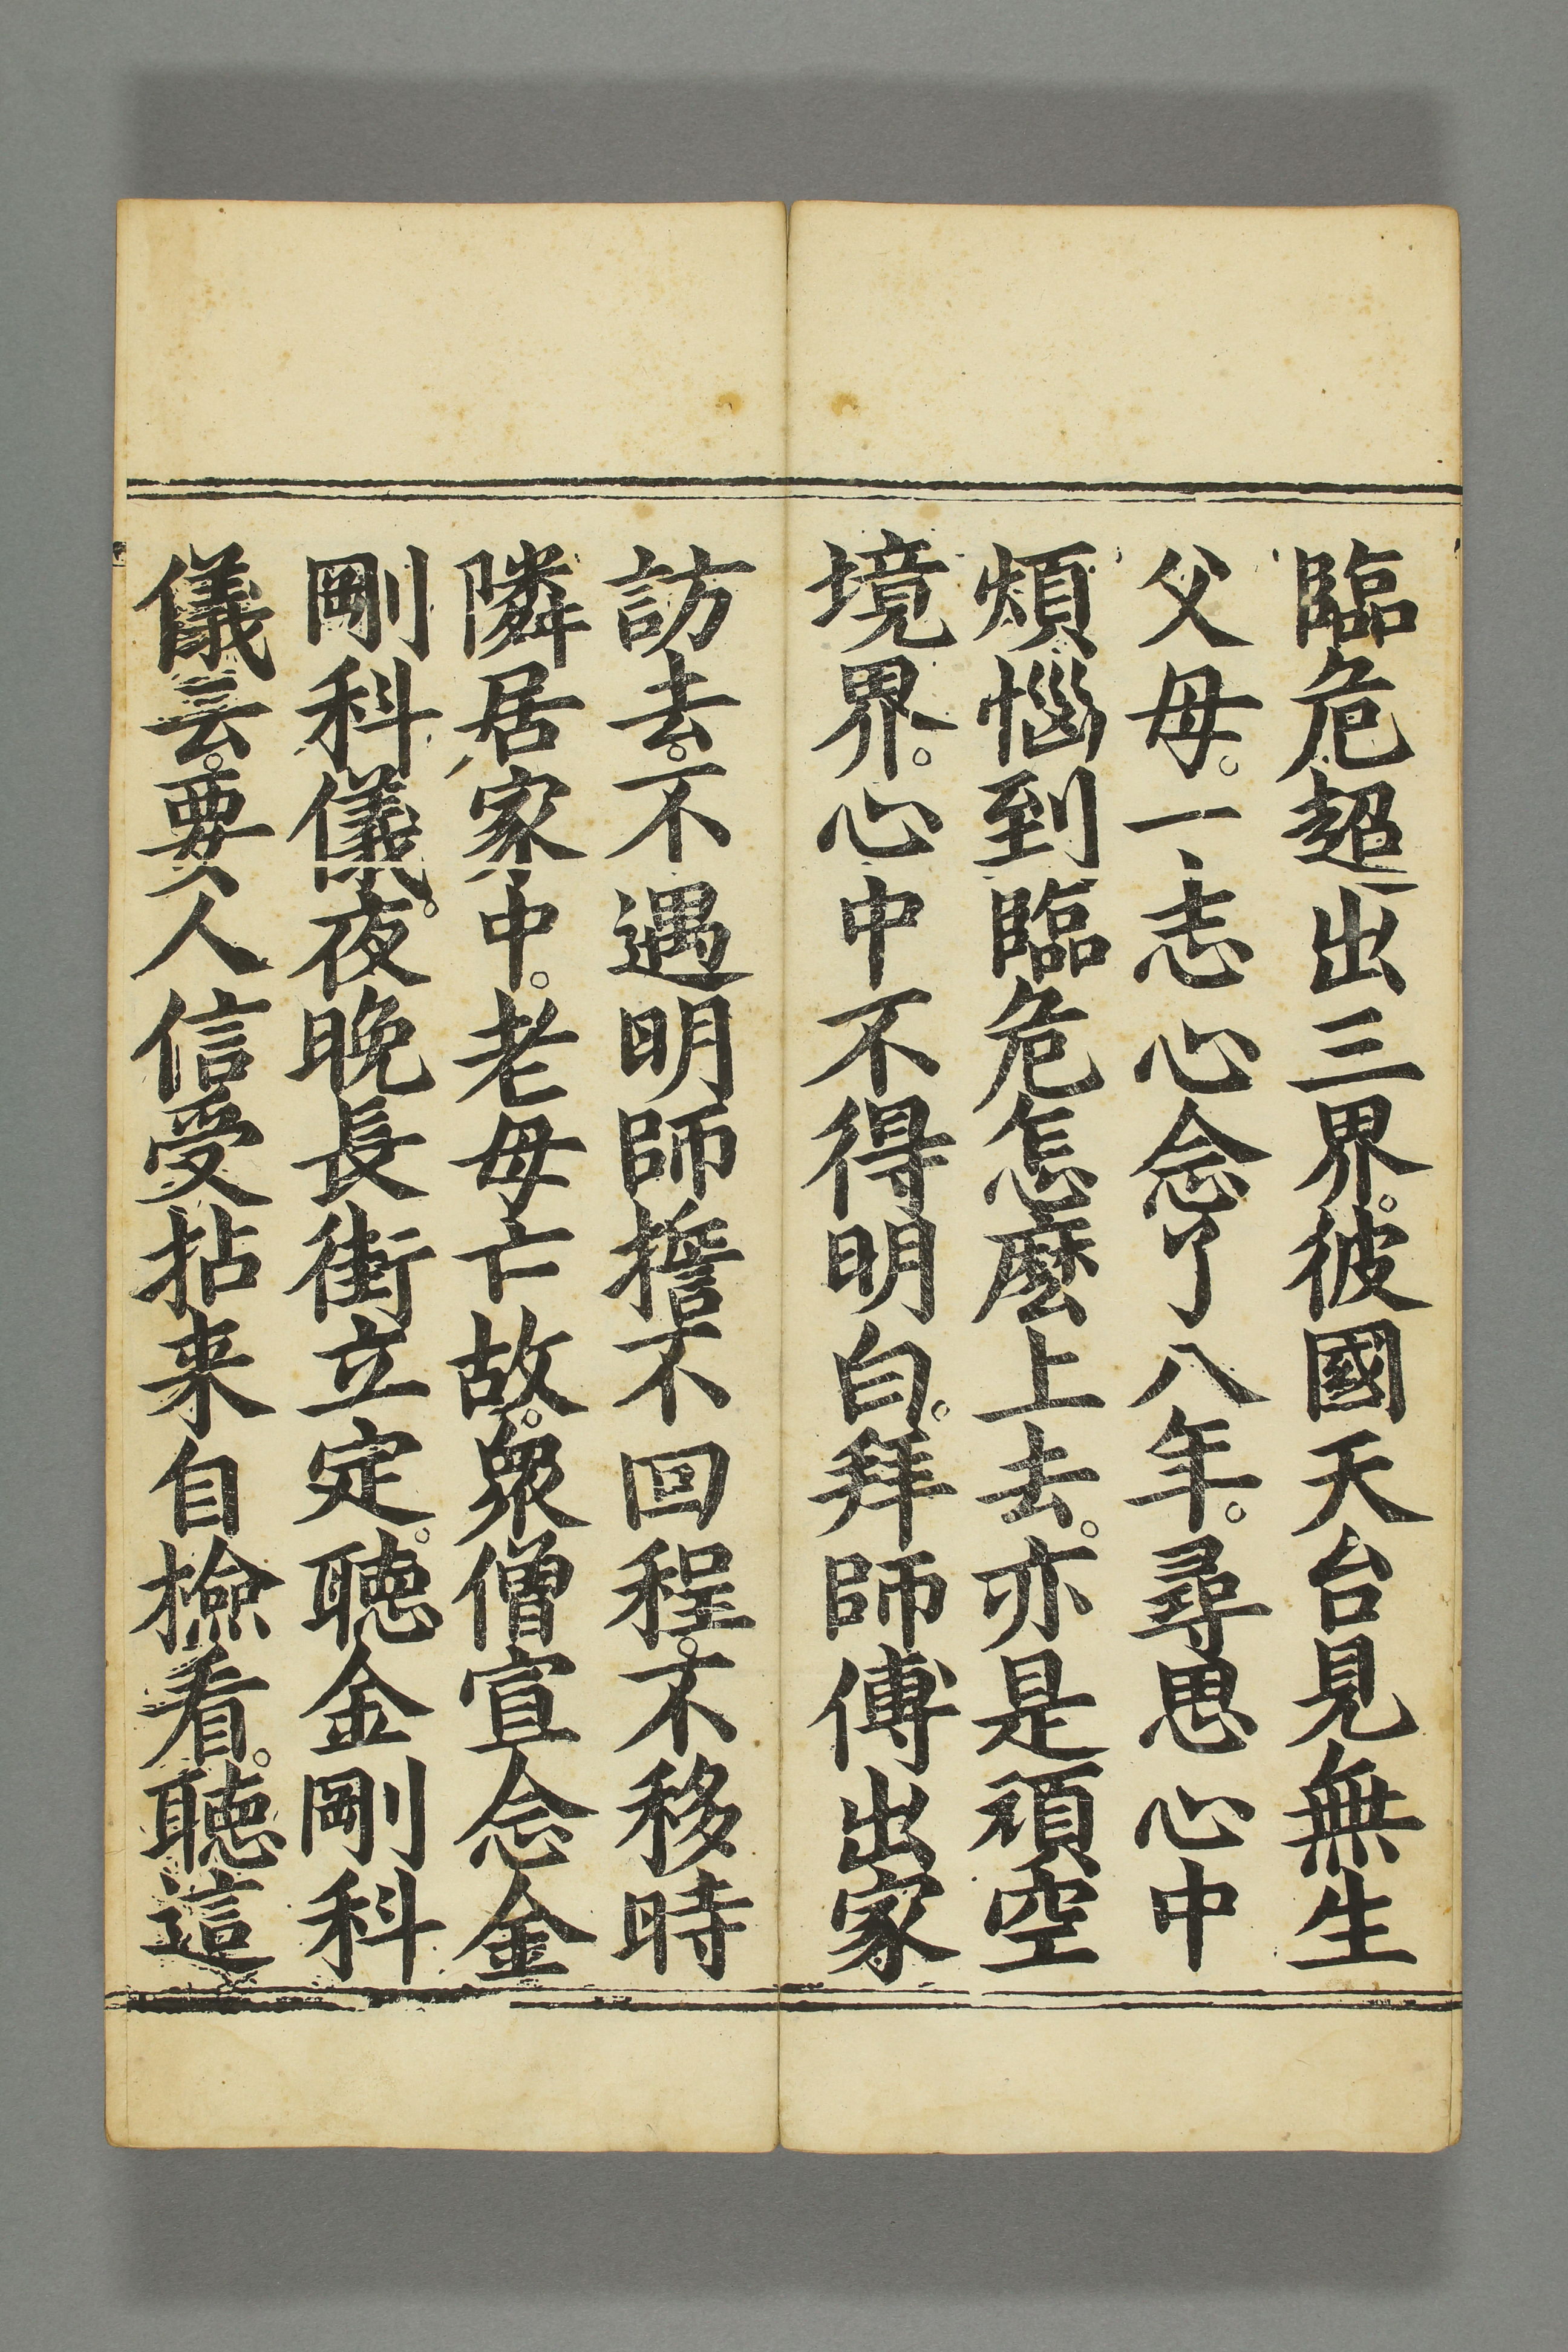 臨危超出三界。彼國天台見無生
父母。一志心念了八年。尋思心中
煩惱到臨危怎麽上去。亦是頑空
境界。心中不得明白。拜師傅出家
訪去。不遇明師誓不回程。不移時
隣居家中。老母亡故。衆僧宣念金
剛科儀。夜晚長街立定。聽金剛科
儀云。要人信受拈来自撿看。聽這